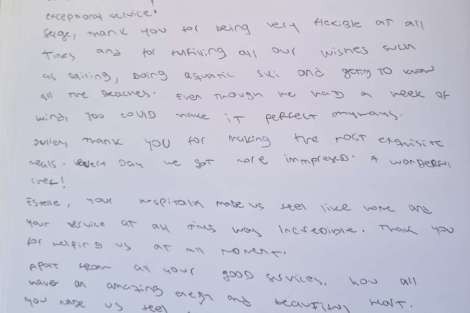 exceptional service!
Serge, thank you for being very flexible at all
times and for fulfilling all our wishes such
as sailing, doing aquatic ski and going to know
all the beaches. Even though we had a week of
wind, you could make it perfect anyways.
thank you for making the most exquisite
meals. every day we got more impressed. A wonderful
chef!
Estelle, your hospitality made us feel like home and
your service at all times was incredible. Thank you
for helping us at all moment.
Apart from all your good services, you all
have an amazing energy and beautiful heart.
you made us feel